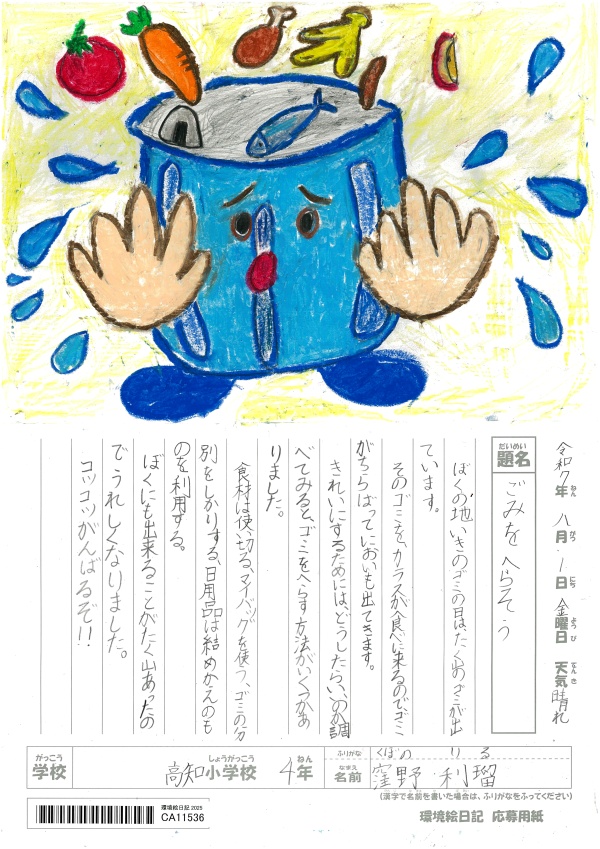 令和7年 八月 1日 金曜日 天気 晴れ
ねん がつ にち ようび てんき
だいめい
題名 ごみをへらそう
ぼくの地いきのゴミの日は、たく山のゴミが出
ています。
そのゴミをカラスが食べに来るのでゴミ
がちらばってにおいも出てきます。
きれいにするためには、どうしたらいいのか調
べてみると、ゴミをへらす方法がいくつかあ
りました。
食材は使い切る、マイバッグを使う、ゴミの分
別をしかりする、日用品は結めかえのも
のを利用する。
ぼくにも出来ることがたく山あったの
でうれしくなりました。
コツコツがんばるぞ!!
がっこう しょうがっこう ねん ふりがな くぼの りる
学校 高知小学校 4年 なまえ 名前 窪野 利瑠
(漢字で名前を書いた場合は、ふりがなをふってください)
環境絵日記 2025
CA11536
環境絵日記 応募用紙